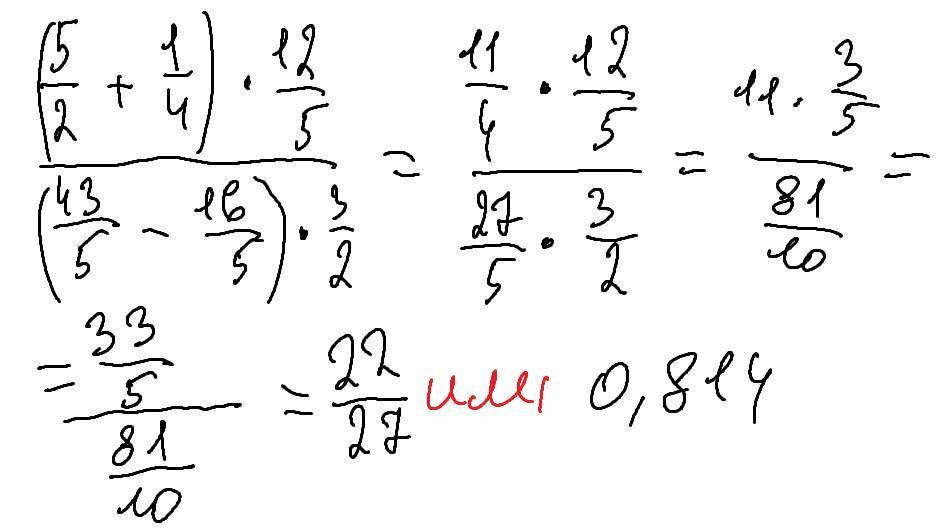 ((5/2 + 1/4) · 12/5) / ((43/5 − 16/5) · 3/2) = (11/4 · 12/5) / (27/5 · 3/2) = (11 · 3/5) / (81/10) =
= (33/5) / (81/10) = 22/27 или 0,814